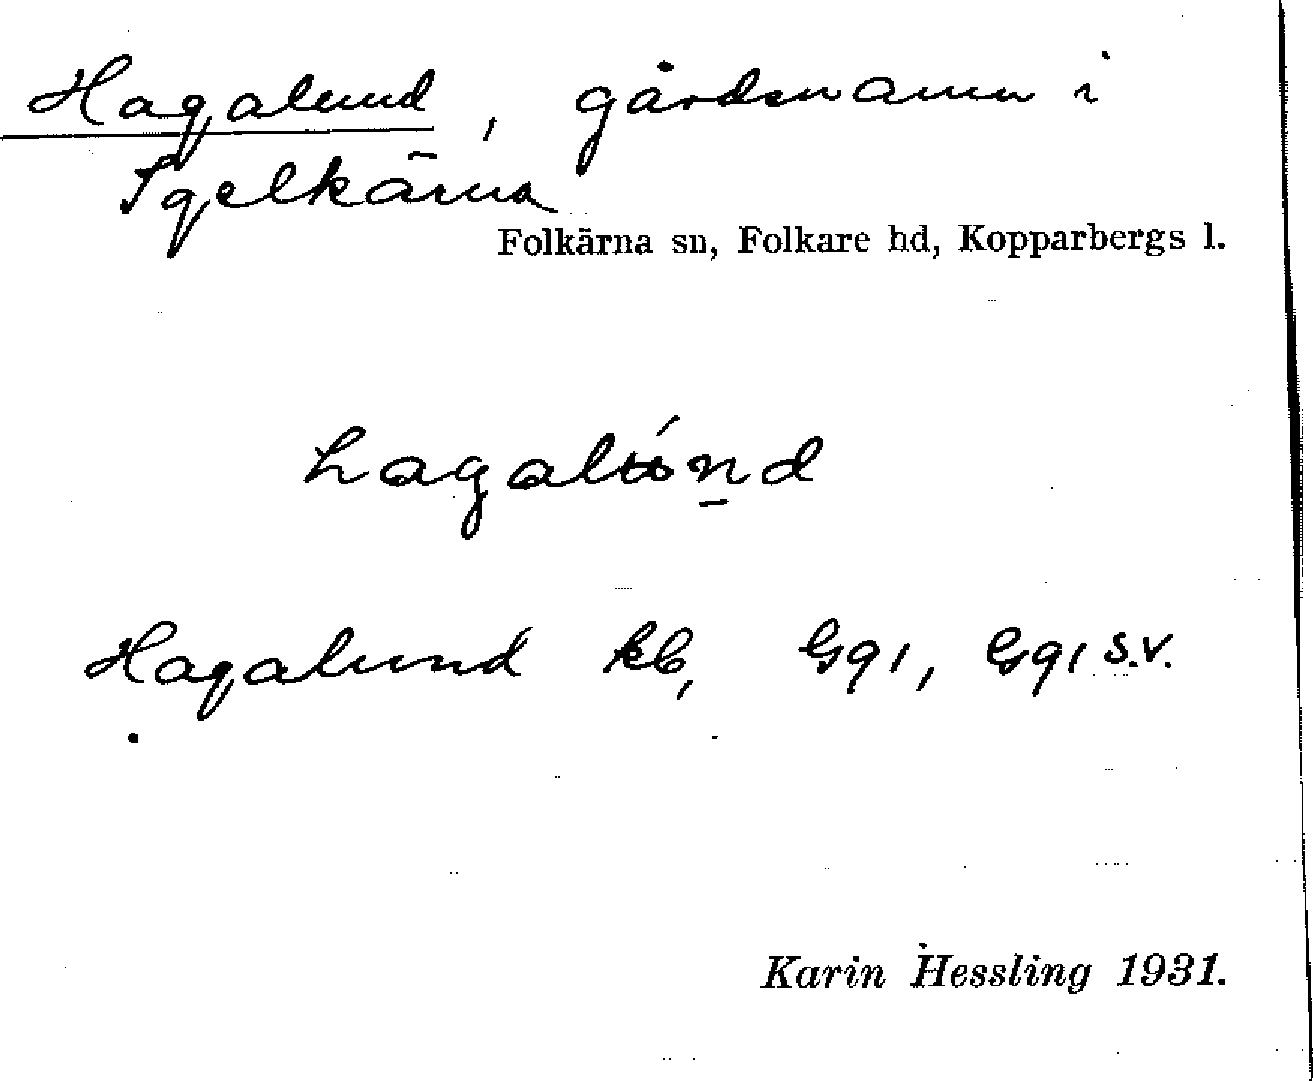 Hagalund, gårdsnamn i
Igelkärna
Folkärna sn, Folkare hd, Kopparbergs l.
hagalún̲d
Hagalund kb, Gg1, Gg1 s.v.
Karin Hessling 1931.